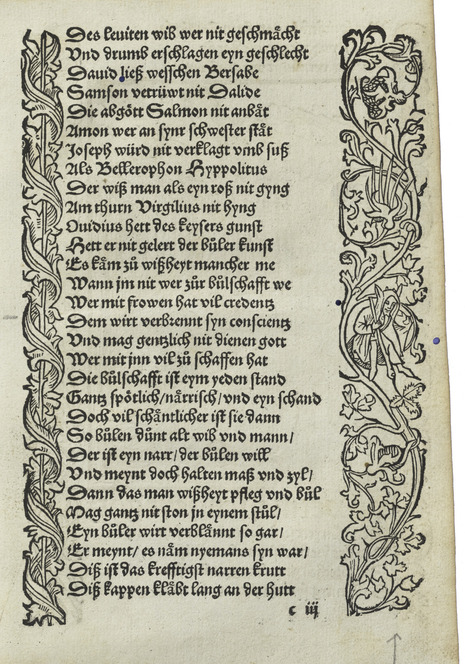 Des leuiten wib wer nit geschmächt
Vnd drumb erschlagen eyn geschlecht
Dauid ließ wesschen Bersabe
Samson vetrüwt nit Dalide
Die abgött Salmon nit anbät
Amon wer an synr schwester stät
Joseph würd nit verklagt vmb suß
Als Bellerophon Hyppolitus
Der wiß man als eyn roß nit gyng
Am thurn Virgilius nit hyng
Ouidius hett des keysers gunst
Hett er nit gelert der büler kunst
Es käm zů wißheyt mancher me
Wann jm nit wer zůr bůlschafft we
Wer mit frowen hat vil credentz
Dem wirt verbrennt syn conscientz
Vnd mag gentzlich nit dienen gott
Wer mit jnn vil zů schaffen hat
Die bůlschafft ist eym yeden stand
Gantz spötlich/närrisch/vnd eyn schand
Doch vil schäntlicher ist sie dann
So bůlen důnt alt wib vnd mann/
Der ist eyn narr/der bůlen will
Vnd meynt doch halten maß vnd zyl/
Dann das man wißheyt pfleg vnd bůl
Mag gantz nit ston in eynem stůl/
Eyn bůler wirt verblännt so gar/
Er meynt/es näm nyemans syn war/
Diß ist das krefftigst narren krutt
Diß kappen kläbt lang an der hutt
c iij